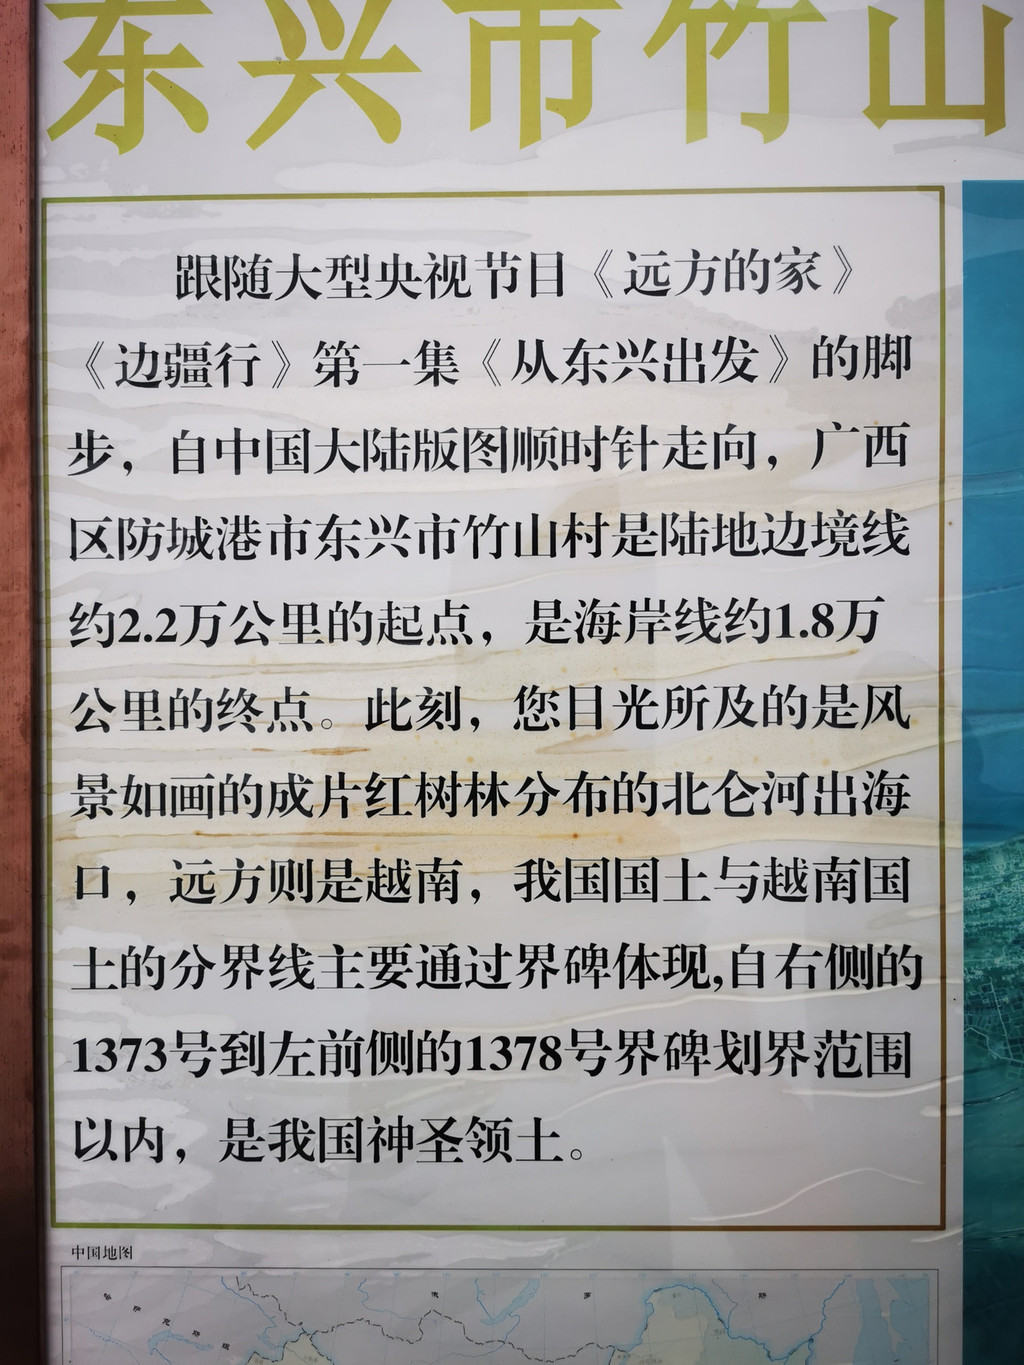 东兴市竹山
跟随大型央视节目《远方的家》
《边疆行》第一集《从东兴出发》的脚
步，自中国大陆版图顺时针走向，广西
区防城港市东兴市竹山村是陆地边境线
约2.2万公里的起点，是海岸线约1.8万
公里的终点。此刻，您目光所及的是风
景如画的成片红树林分布的北仑河出海
口，远方则是越南，我国国土与越南国
土的分界线主要通过界碑体现,自右侧的
1373号到左前侧的1378号界碑划界范围
以内，是我国神圣领土。
中国地图